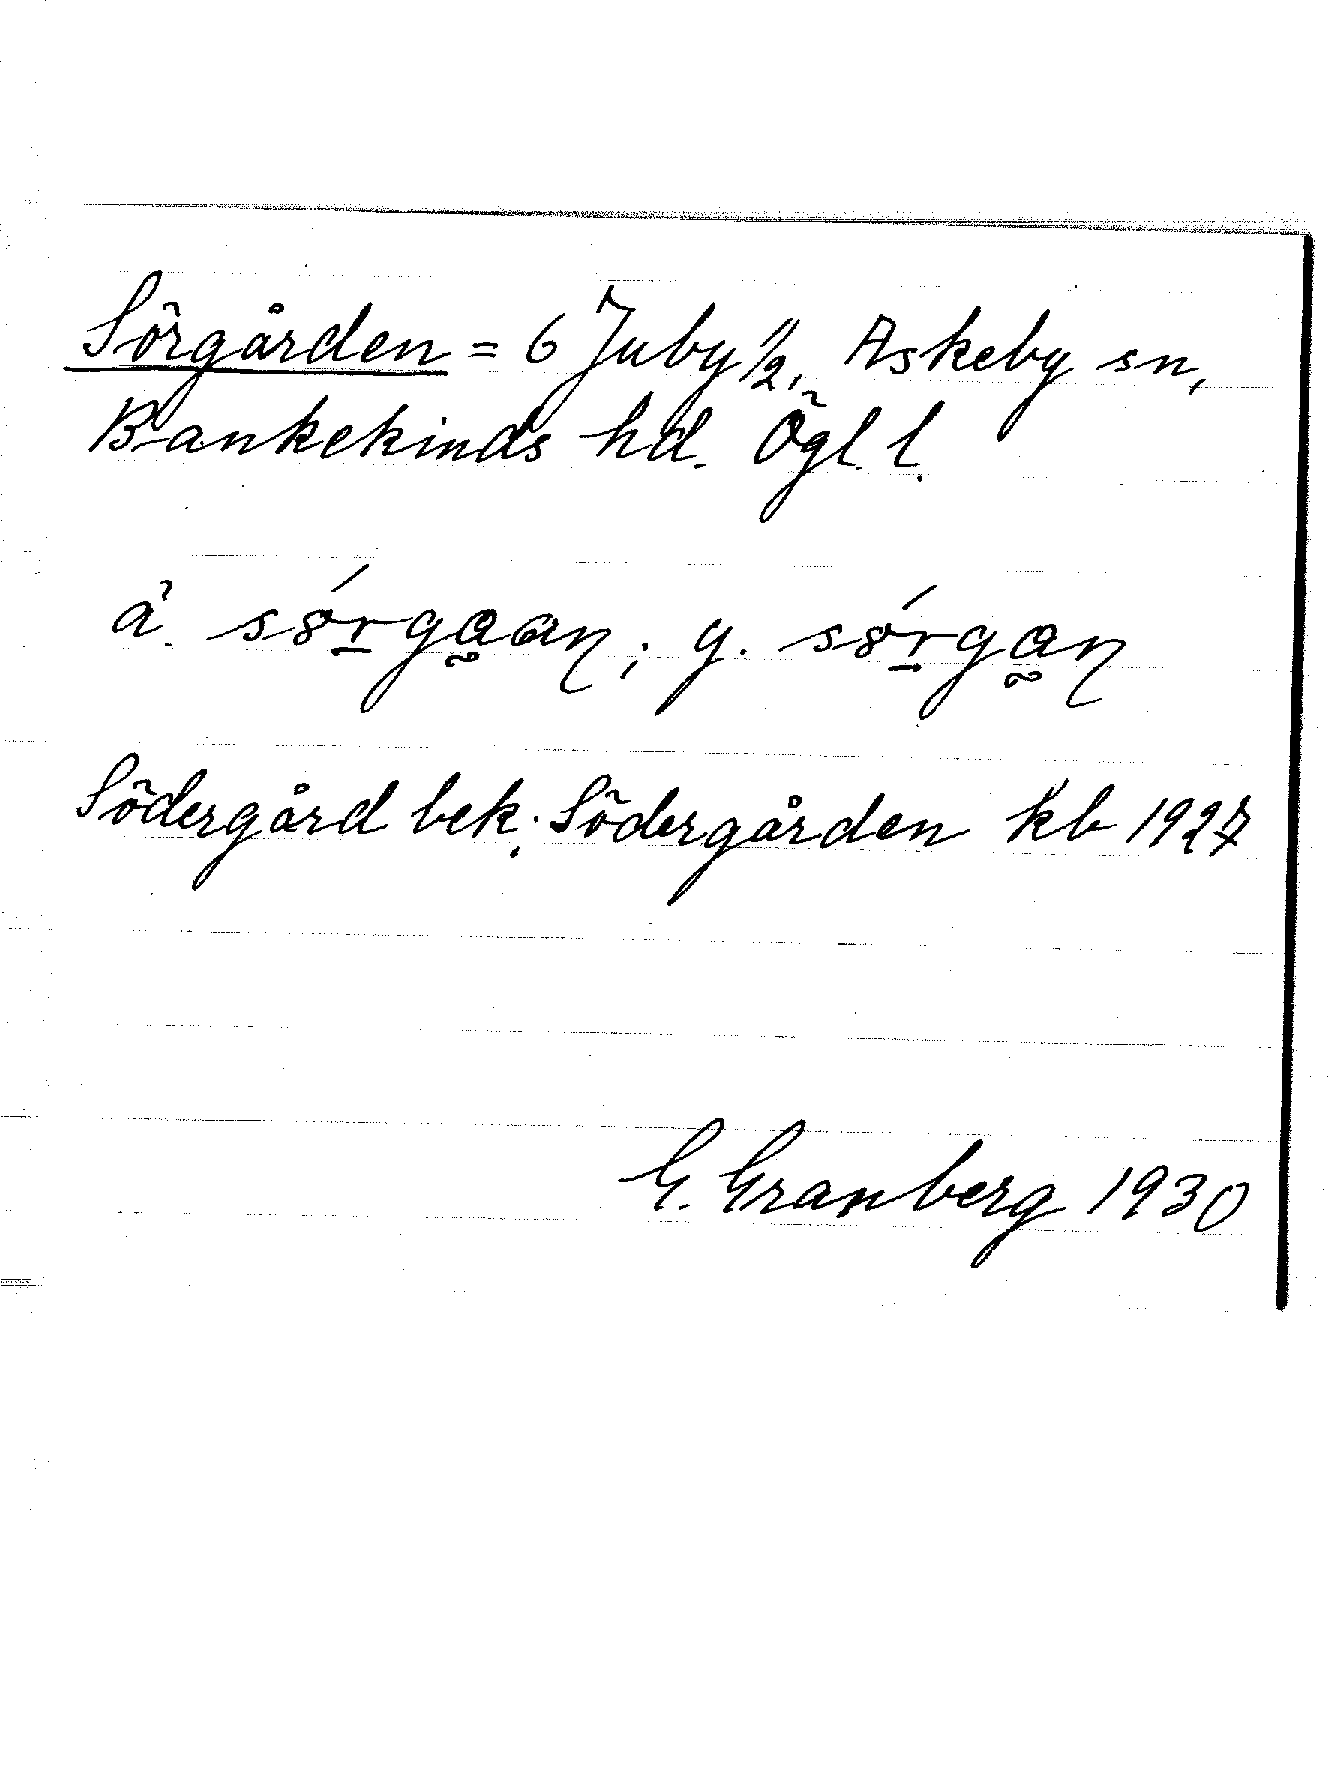 Sörgården = 6 Juby 1/2, Askeby sn,
Bankekinds hd. Ögl. l.
ä. sɵ́rgaan; y. sɵ́rgan
Södergård bek.; Södergården kb 1927
G. Granberg 1930